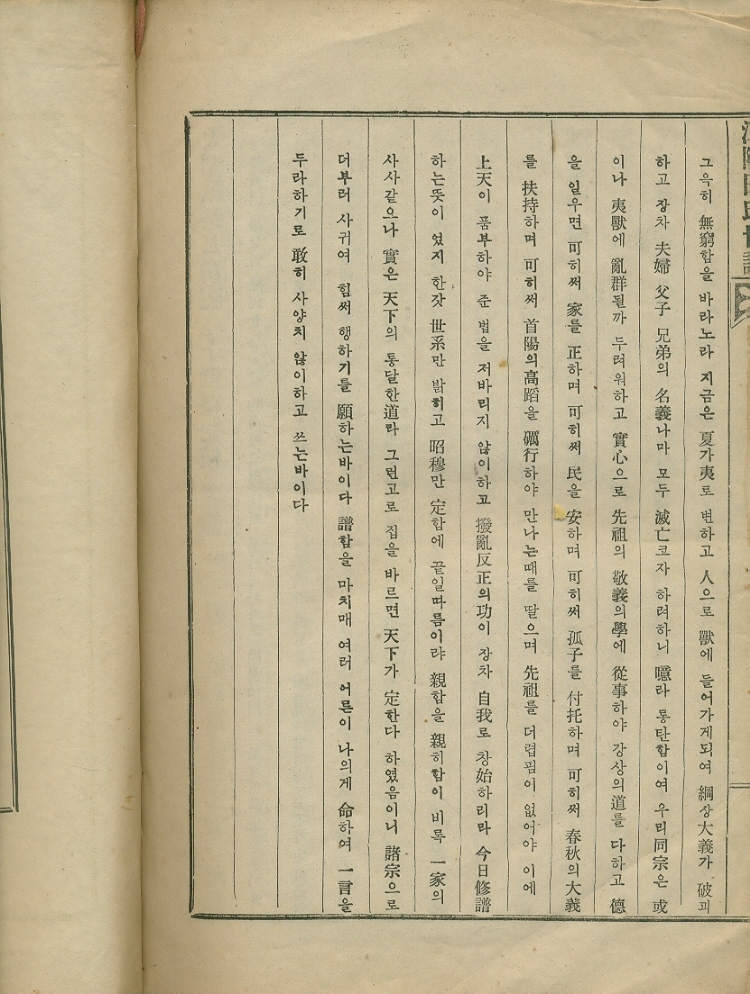 그윽히 無窮함을 바라노라 지금은 夏가夷로 변하고 人으로 獸에 들어가게되여 綱상大義가 破괴
하고 장차 夫婦 父子 兄弟의 名義나마 모두 滅亡코자 하려하니 噫라 통탄함이여 우리同宗은 或
이나 夷獸에 亂群될까 두려워하고 實心으로 先祖의 敬義의學에 從事하야 강상의道를 다하고 德
을 일우면 可히써 家를 正하며 可히써 民을 安하며 可히써 孤子를 付托하며 可히써 春秋의大義
를 扶持하며 可히써 首陽의高蹈을 礪行하야 만나는때를 딸으며 先祖를 더렵핌이 없어야 이에
上天이 품부하야 준 법을 저바리지 않이하고 撥亂反正의功이 장차 自我로 창始하리라 今日修譜
하는뜻이 었지 한갓 世系만 밝히고 昭穆만 定함에 끝일따름이랴 親함을 親히함이 비록 一家의
사사같으나 實은 天下의 통달한道라 그런고로 집을 바르면 天下가 定한다 하였음이니 諸宗으로
더부러 사귀여 힘써 행하기를 願하는바이다 譜함을 마치매 여러 어른이 나의게 命하여 一言을
두라하기로 敢히 사양치 않이하고 쓰는바이다